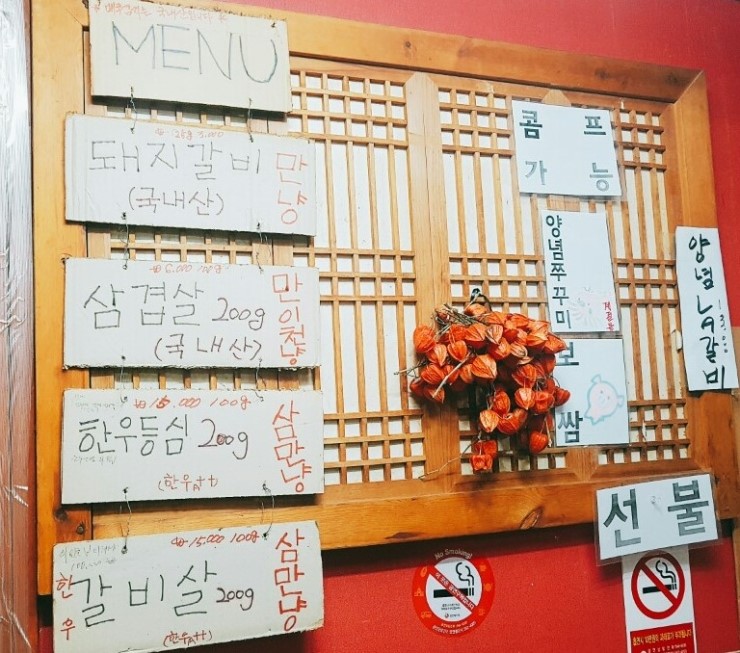 MENU
돼지갈비
(국내산)
만냥
5,000 100g
삼겹살 200g
(국내산)
만이천냥
15.000 100g
한우등심 200g
(한우A++)
삼만냥
15.000 100g
한우
갈비살 200g
(한우A++)
삼만냥
콤프
가능
양념쭈꾸미
보쌈
양념LA갈비
선불
No Smoking!